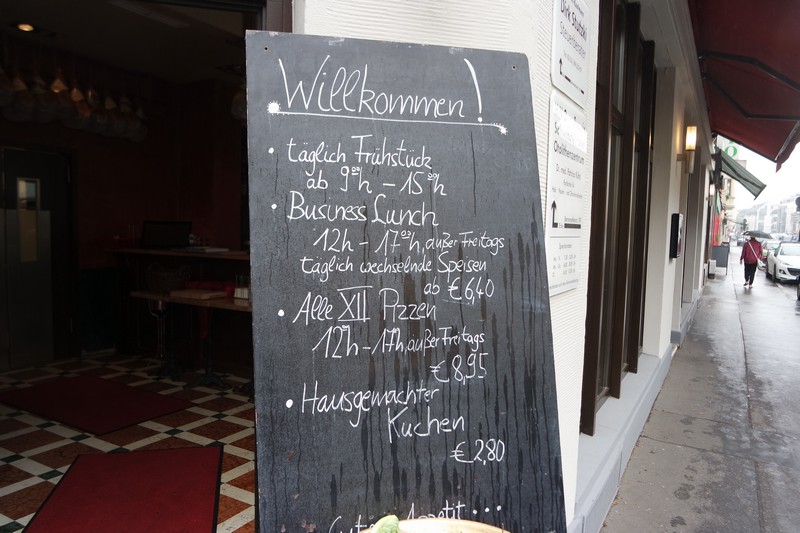 Willkommen!
• täglich Frühstück
ab 9⁰⁰h – 15⁰⁰h
• Business Lunch
12h – 17⁰⁰h, außer Freitags
täglich wechselnde Speisen
ab €6,40
• Alle XII Pizzen
12h – 17h, außer Freitags
€ 8,95
• Hausgemachter
Kuchen
€ 2,80
Guten Appetit...
Dirk Stutzki
Steuerberater